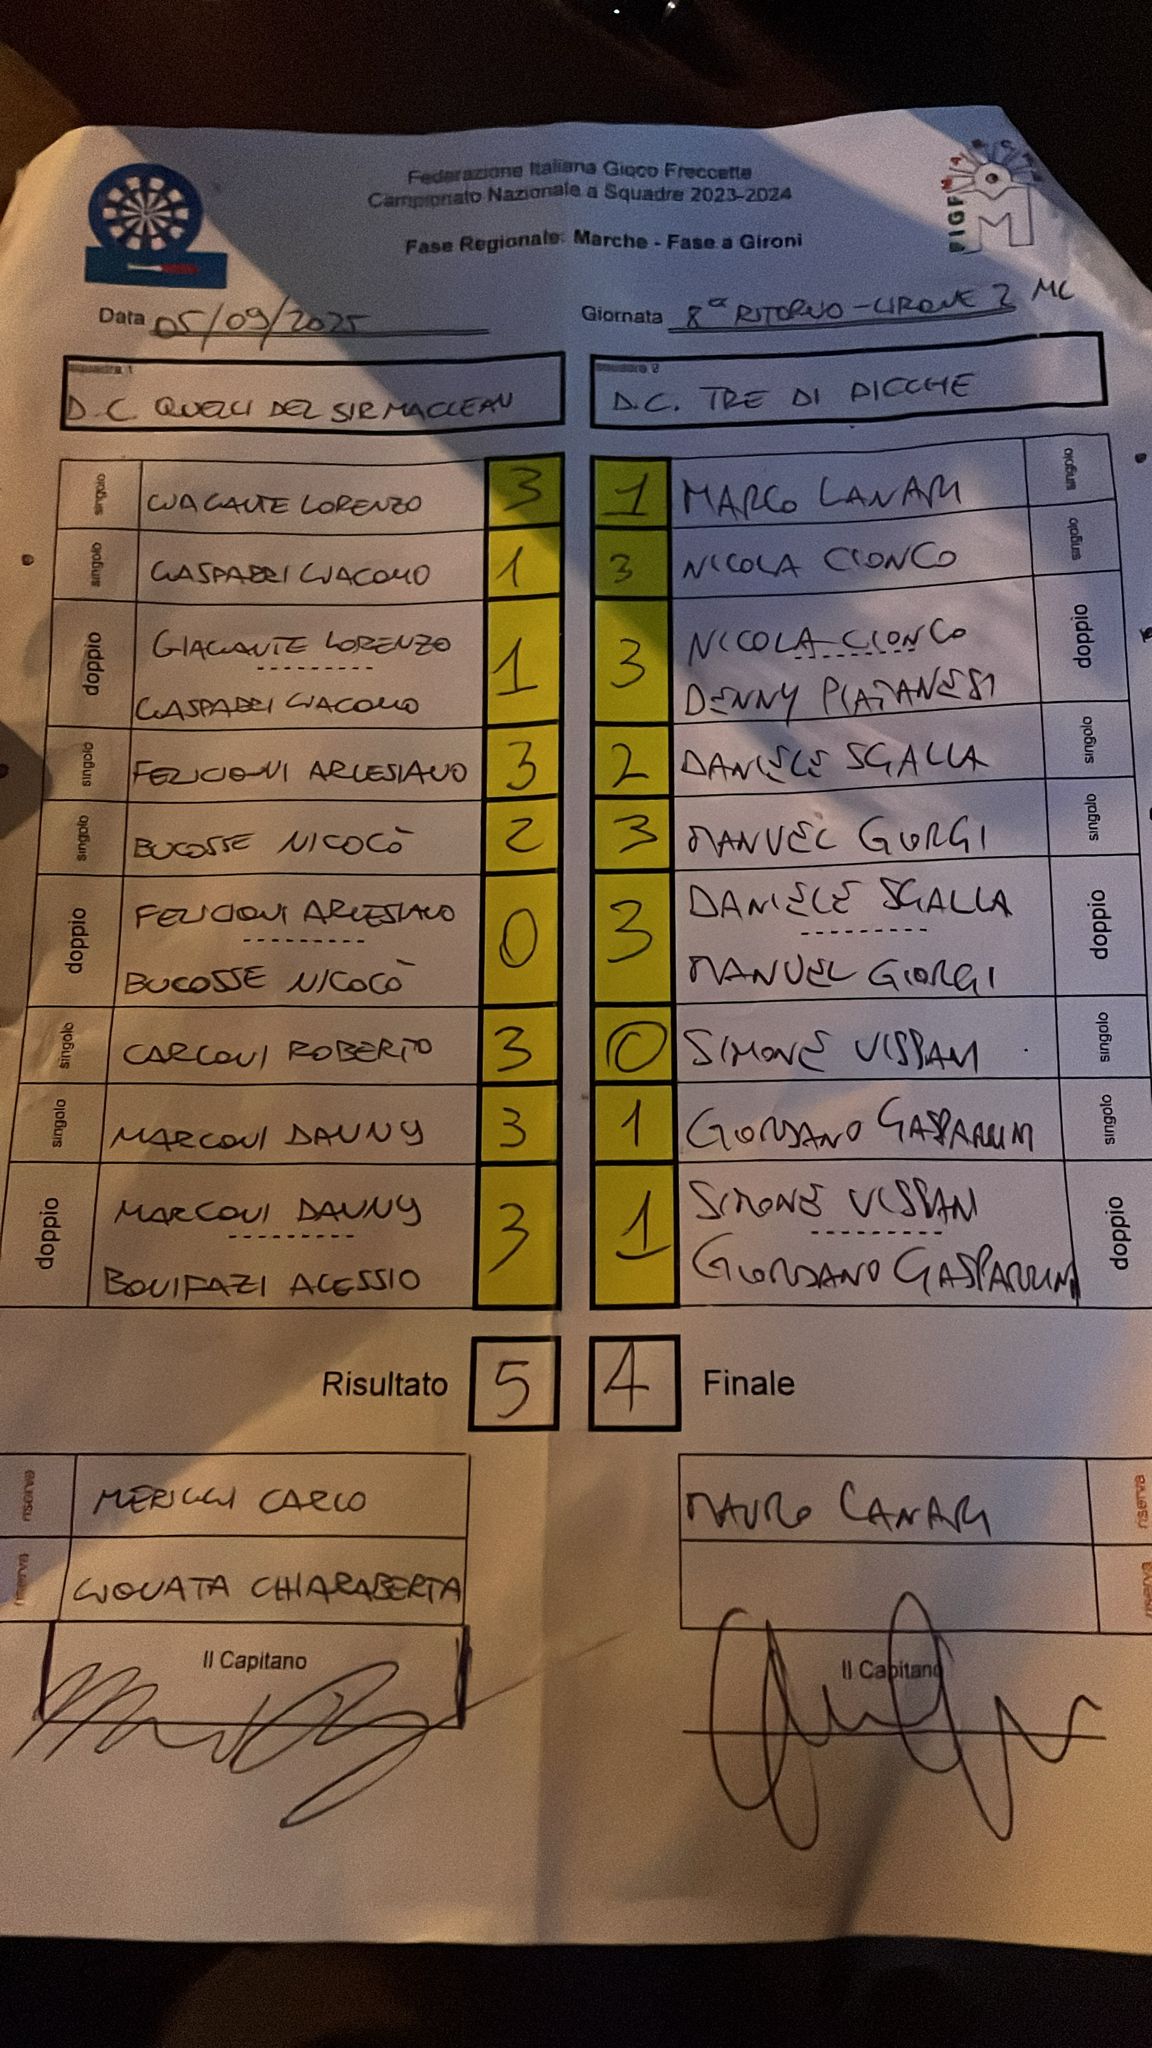 Federazione Italiana Gioco Freccette
Campionato Nazionale a Squadre 2023-2024
Fase Regionale: Marche - Fase a Gironi
FIGF
Data 05/09/2025
Giornata 8ª RITORNO - GIRONE 2 MC
squadra 1
D.C. QUELLI DEL SIR MACLEAN
squadra 2
D.C. TRE DI PICCHE
singolo GIAGANTE LORENZO 3 1 MARCO CANARI singolo
singolo GASPARRI GIACOMO 1 3 NICOLA CIONCO singolo
doppio GIAGANTE LORENZO 1 3 NICOLA CIONCO doppio
GASPARRI GIACOMO DENNY PIATANESI
singolo FELICIONI ARLESIANO 3 2 DANIELE SGALLA singolo
singolo BUCOSSE NICOLÒ 2 3 MANUEL GIORGI singolo
doppio FELICIONI ARLESIANO 0 3 DANIELE SGALLA doppio
BUCOSSE NICOLÒ MANUEL GIORGI
singolo CARLONI ROBERTO 3 0 SIMONE VISSANI singolo
singolo MARCONI DANNY 3 1 GIORDANO GASPARRINI singolo
doppio MARCONI DANNY 3 1 SIMONE VISSANI doppio
BONIFAZI ALESSIO GIORDANO GASPARRINI
Risultato 5 4 Finale
riserva MERIGGI CARLO MAURO CANARI riserva
riserva GIONATA CHIARABERTA riserva
Il Capitano Il Capitano